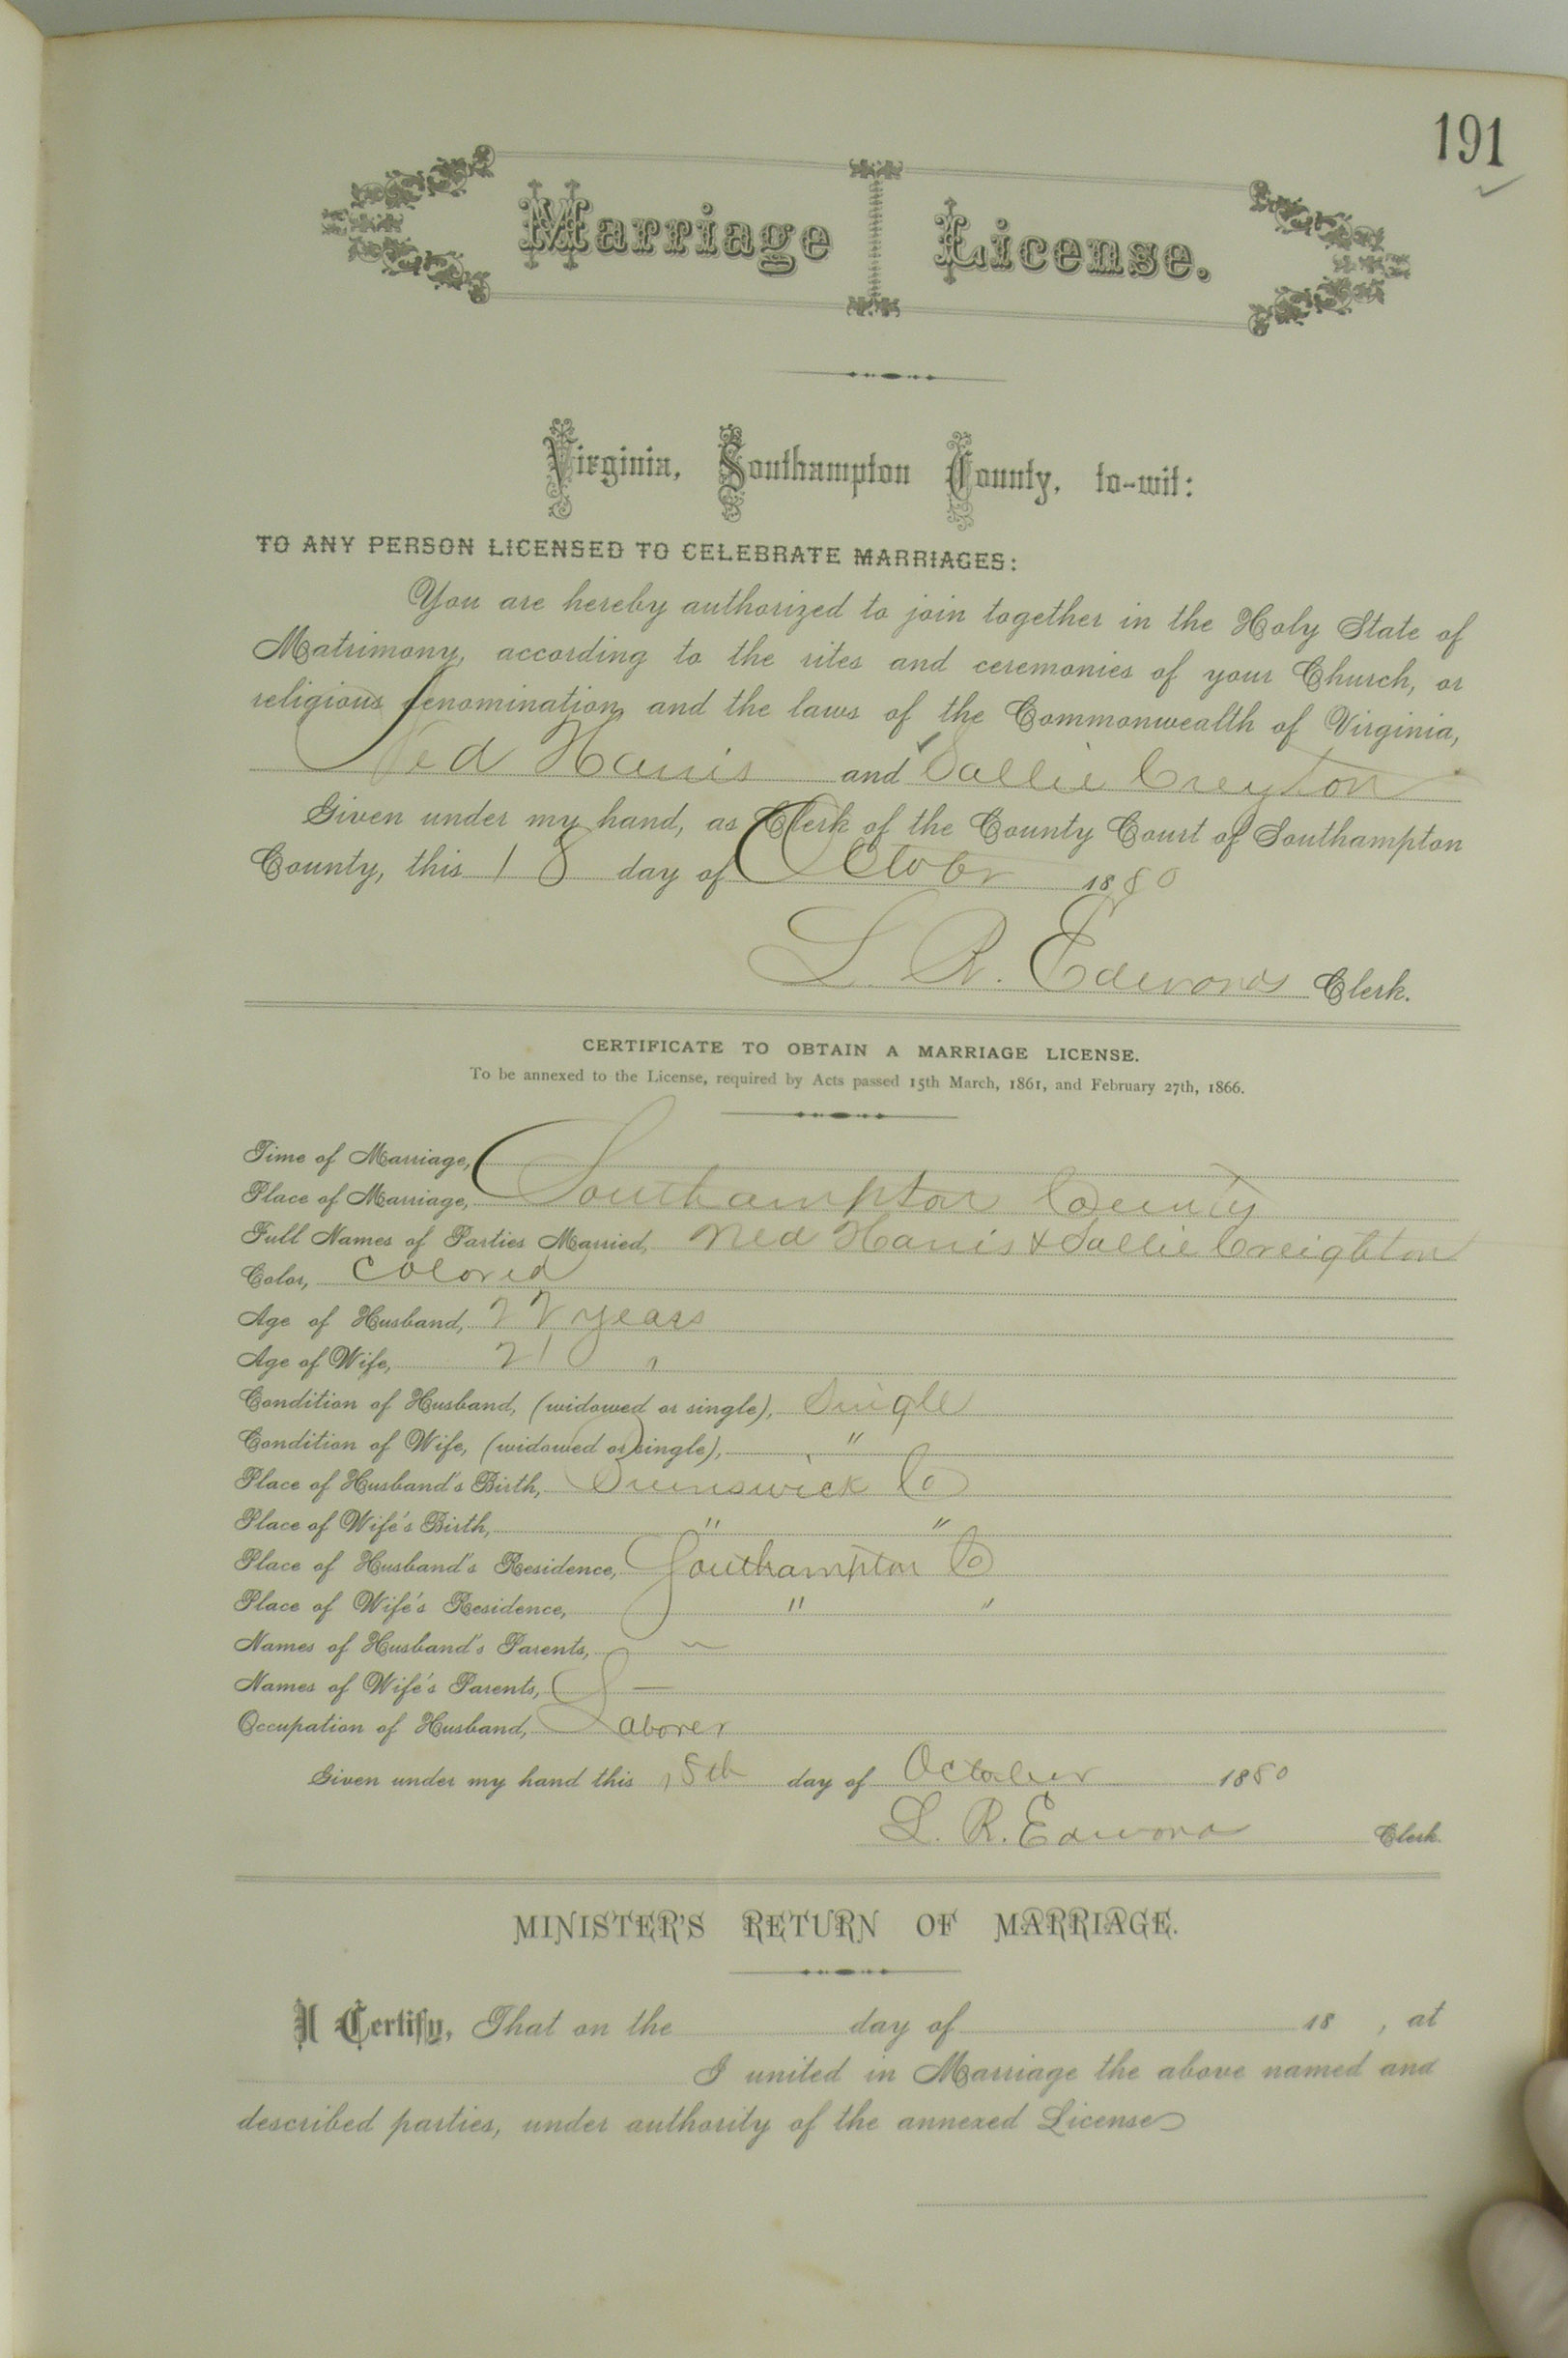 191
Marriage License.
Virginia, Southampton County, to-wit:
TO ANY PERSON LICENSED TO CELEBRATE MARRIAGES:
You are hereby authorized to join together in the Holy State of
Matrimony, according to the rites and ceremonies of your Church, or
religious denomination, and the laws of the Commonwealth of Virginia,
Ned Harris and Sallie Creyton
Given under my hand, as Clerk of the County Court of Southampton
County, this 18 day of Octobr 1880
L. R. Edwards Clerk.
CERTIFICATE TO OBTAIN A MARRIAGE LICENSE.
To be annexed to the License, required by Acts passed 15th March, 1861, and February 27th, 1866.
Time of Marriage,
Place of Marriage, Southampton County
Full Names of Parties Married, Ned Harris & Sallie Creighton
Color, Colored
Age of Husband, 22 years
Age of Wife, 21 "
Condition of Husband, (widowed or single), Single
Condition of Wife, (widowed or single), "
Place of Husband's Birth, Brunswick Co
Place of Wife's Birth, " "
Place of Husband's Residence, Southampton Co
Place of Wife's Residence, " "
Names of Husband's Parents, —
Names of Wife's Parents, —
Occupation of Husband, Laborer
Given under my hand this 18th day of October 1880
L. R. Edwards Clerk
MINISTER'S RETURN OF MARRIAGE.
I Certify, That on the day of 18 , at
I united in Marriage the above named and
described parties, under authority of the annexed License